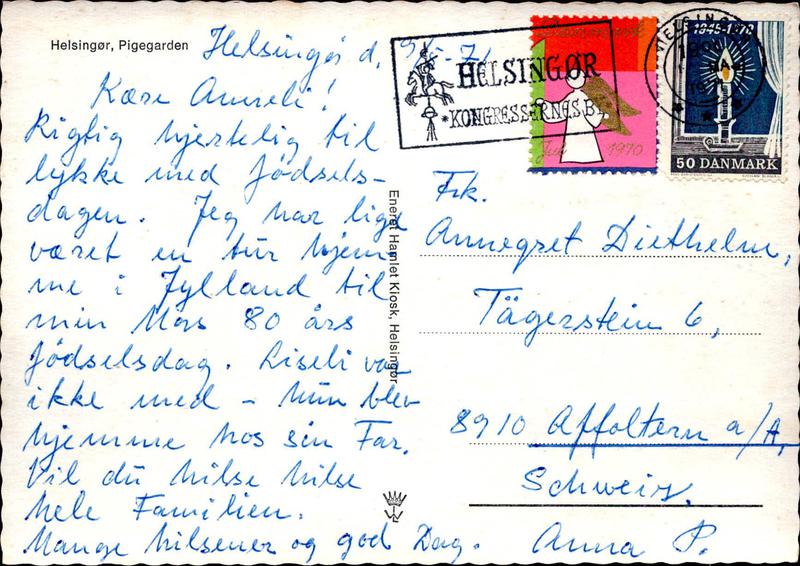 Helsingør, Pigegarden
Helsingør d.
Kære Anneli!
Rigtig hjertelig til
lykke med fødsels-
dagen. Jeg har lige
været en tur hjem-
me i Jylland til
min Mors 80 års
fødselsdag. Liseli var
ikke med – hun blev
hjemme hos sin Far.
Vil du hilse hilse
hele Familien.
Mange hilsener og god Dag. Anna P.
Eneret Hamlet Kiosk, Helsingør
HELSINGØR
*KONGRESSERNES BY
Jul 1970
HELSINGØR
1945-1970
50 DANMARK
Frk.
Annegret Diethelm,
Tägerstein 6,
8910 Affoltern a/A,
Schweiz.